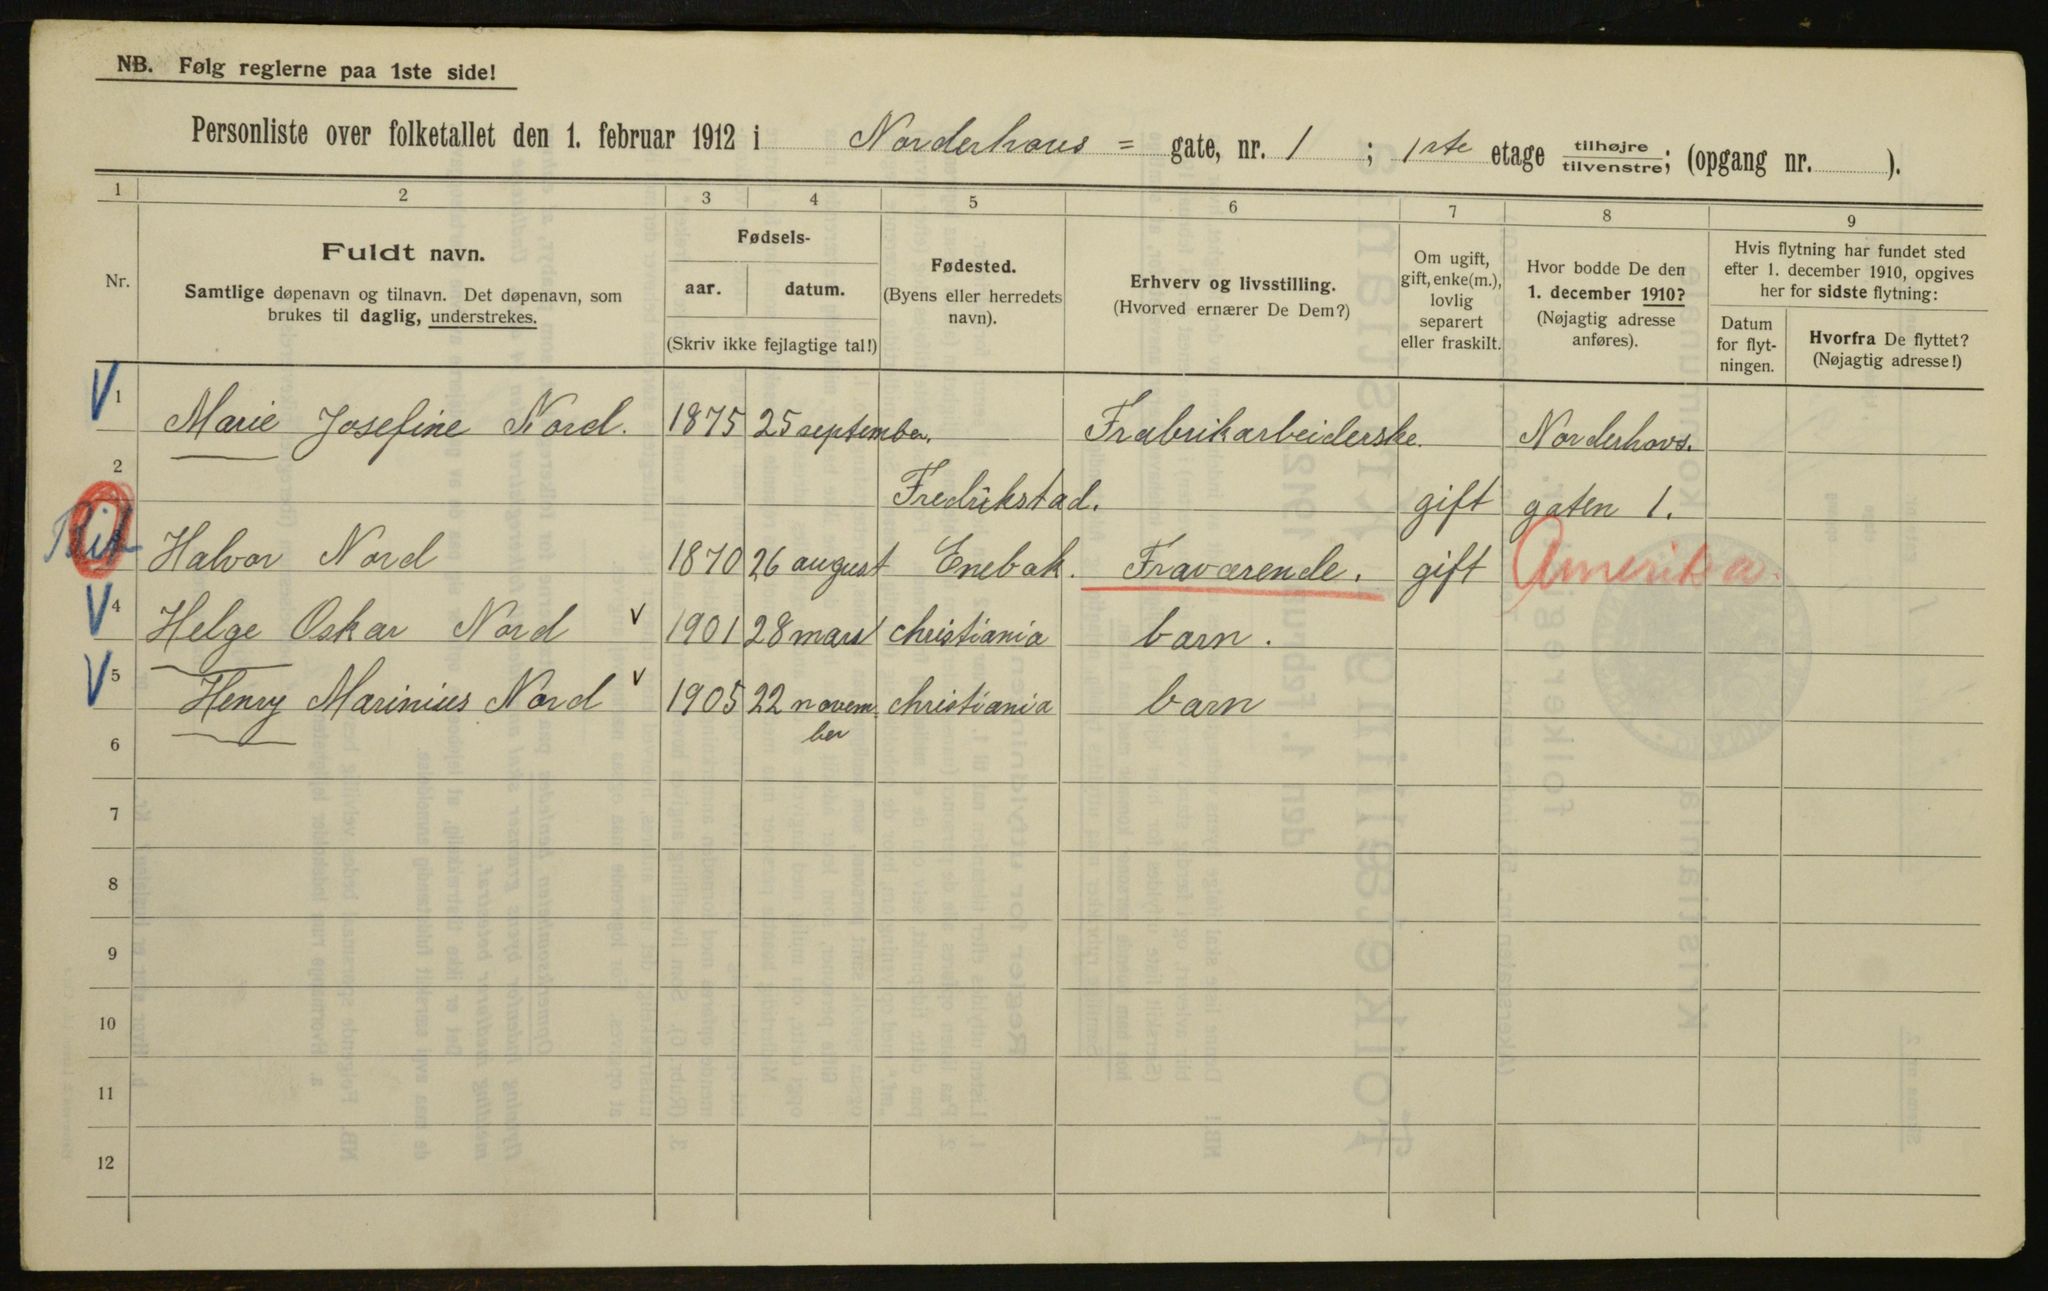 NB. Følg reglerne paa 1ste side!
Personliste over folketallet den 1. februar 1912 i Norderhovs = gate, nr. 1 ; 1ste etage tilhøjre/tilvenstre; (opgang nr. ).
1 2 3 4 5 6 7 8 9
Nr.
Fuldt navn.
Samtlige døpenavn og tilnavn. Det døpenavn, som
brukes til daglig, understrekes.
Fødsels-
aar. datum.
(Skriv ikke fejlagtige tal!)
Fødested.
(Byens eller herredets
navn).
Erhverv og livsstilling.
(Hvorved ernærer De Dem?)
Om ugift,
gift, enke(m.),
lovlig
separert
eller fraskilt.
Hvor bodde De den
1. december 1910?
(Nøjagtig adresse
anføres).
Hvis flytning har fundet sted
efter 1. december 1910, opgives
her for sidste flytning:
Datum
for flyt-
ningen.
Hvorfra De flyttet?
(Nøjagtig adresse!)
V 1 Marie Josefine Nord. 1875 25 september. Frabrikarbeiderske. Norderhovs.
2 Fredrikstad. gift gaten 1.
Halvor Nord 1870 26 august Enebak. Fraværende. gift Amerika.
V 4 Helge Oskar Nord V 1901 28 mars christiania barn.
V 5 Henry Marinius Nord V 1905 22 novem christiania barn
ber
6
7
8
9
10
11
12